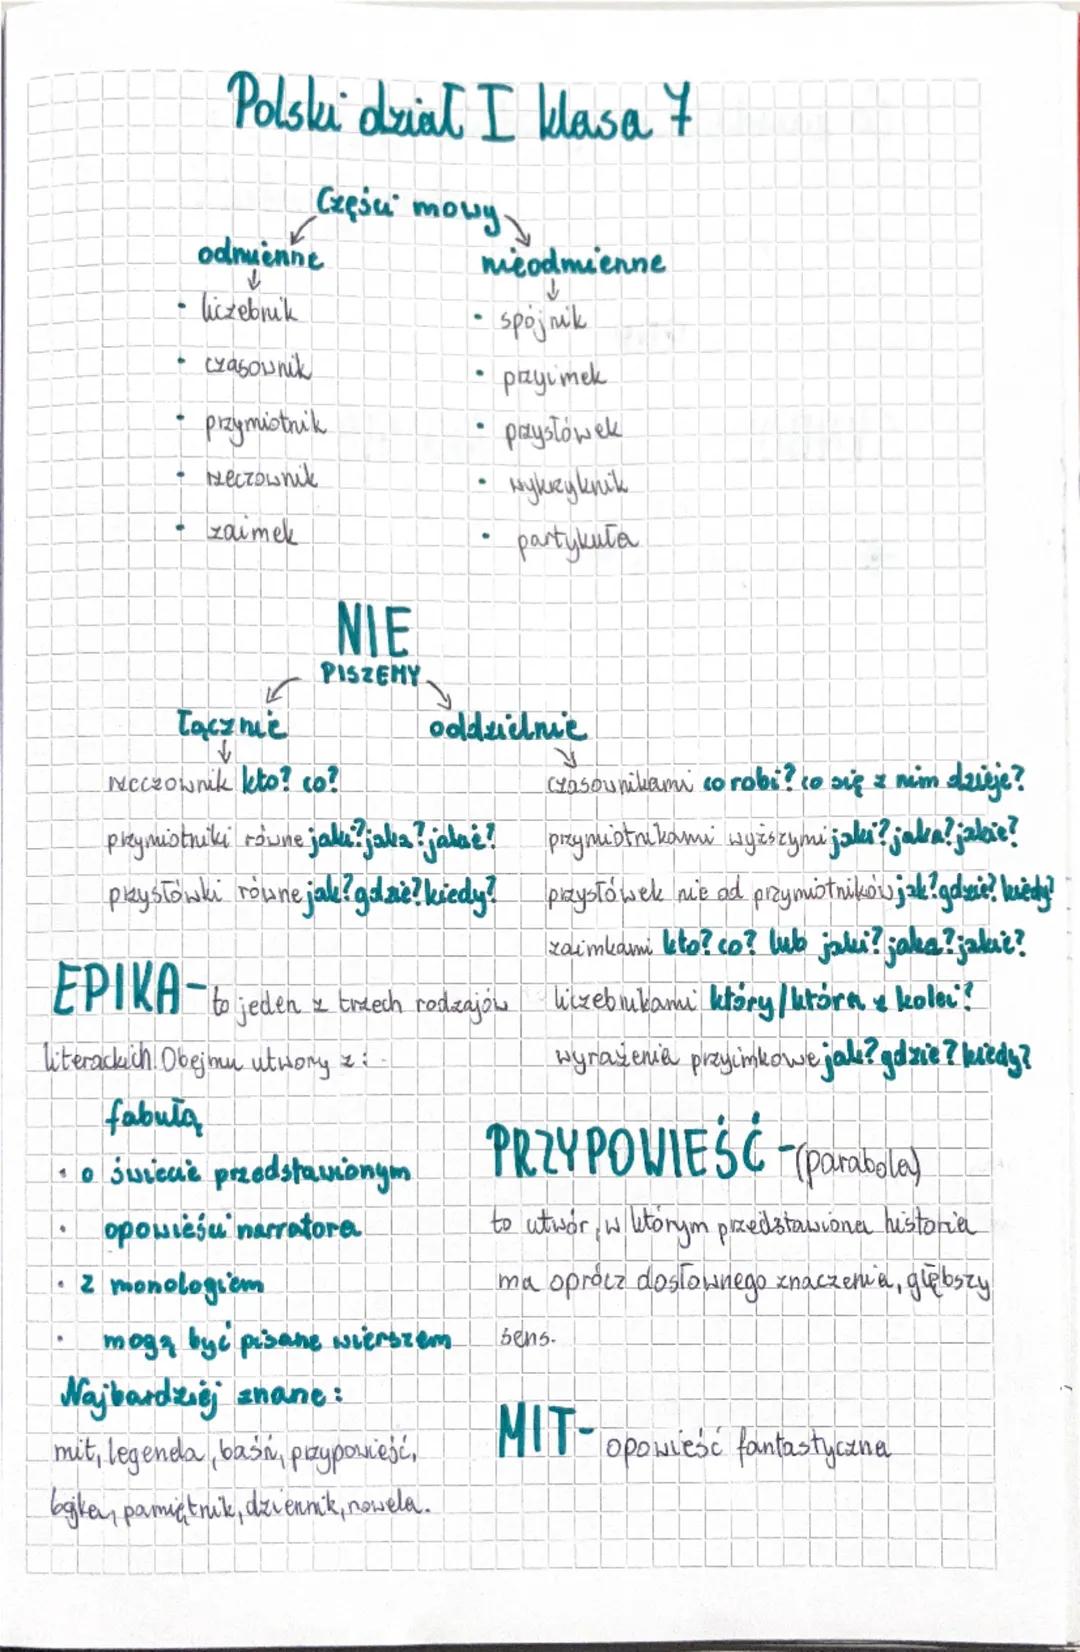 Polski dział I klasa 7
Części mowy
odmienne
liczebnik
czasownik
przymiotnik
rzeczownik
zaimek
nieodmienne
spójnik
przyimek
przysłówek
wykrzyknik
partykuła
NIE
PISZEMY
łącznie
rzeczownik kto? co?
przymiotniki równe jaki? jaka? jakie?
przysłówki równe jak? gdzie? kiedy?
oddzielnie
czasownikami co robi? co się z nim dzieje?
przymiotnikami wyższymi jaki? jaka? jakie?
przysłówek nie od przymiotników jak? gdzie? kiedy?
zaimkami kto? co? lub jaki? jaka? jakie?
liczebnikami który/która z kolei?
wyrażenia przyimkowe jak? gdzie? kiedy?
EPIKA- to jeden z trzech rodzajów
literackich. Obejmu utwory z:
fabułą
• o świecie przedstawionym
• opowieści narratora
• z monologiem
• mogą być pisane wierszem
Najbardziej znane:
mit, legenda, baśń, przypowieść,
bajka, pamiętnik, dziennik, nowela.
PRZYPOWIEŚĆ -(parabola)
to utwór, w którym przedstawiona historia
ma oprócz dosłownego znaczenia, głębszy
sens.
MIT- opowieść fantastyczna